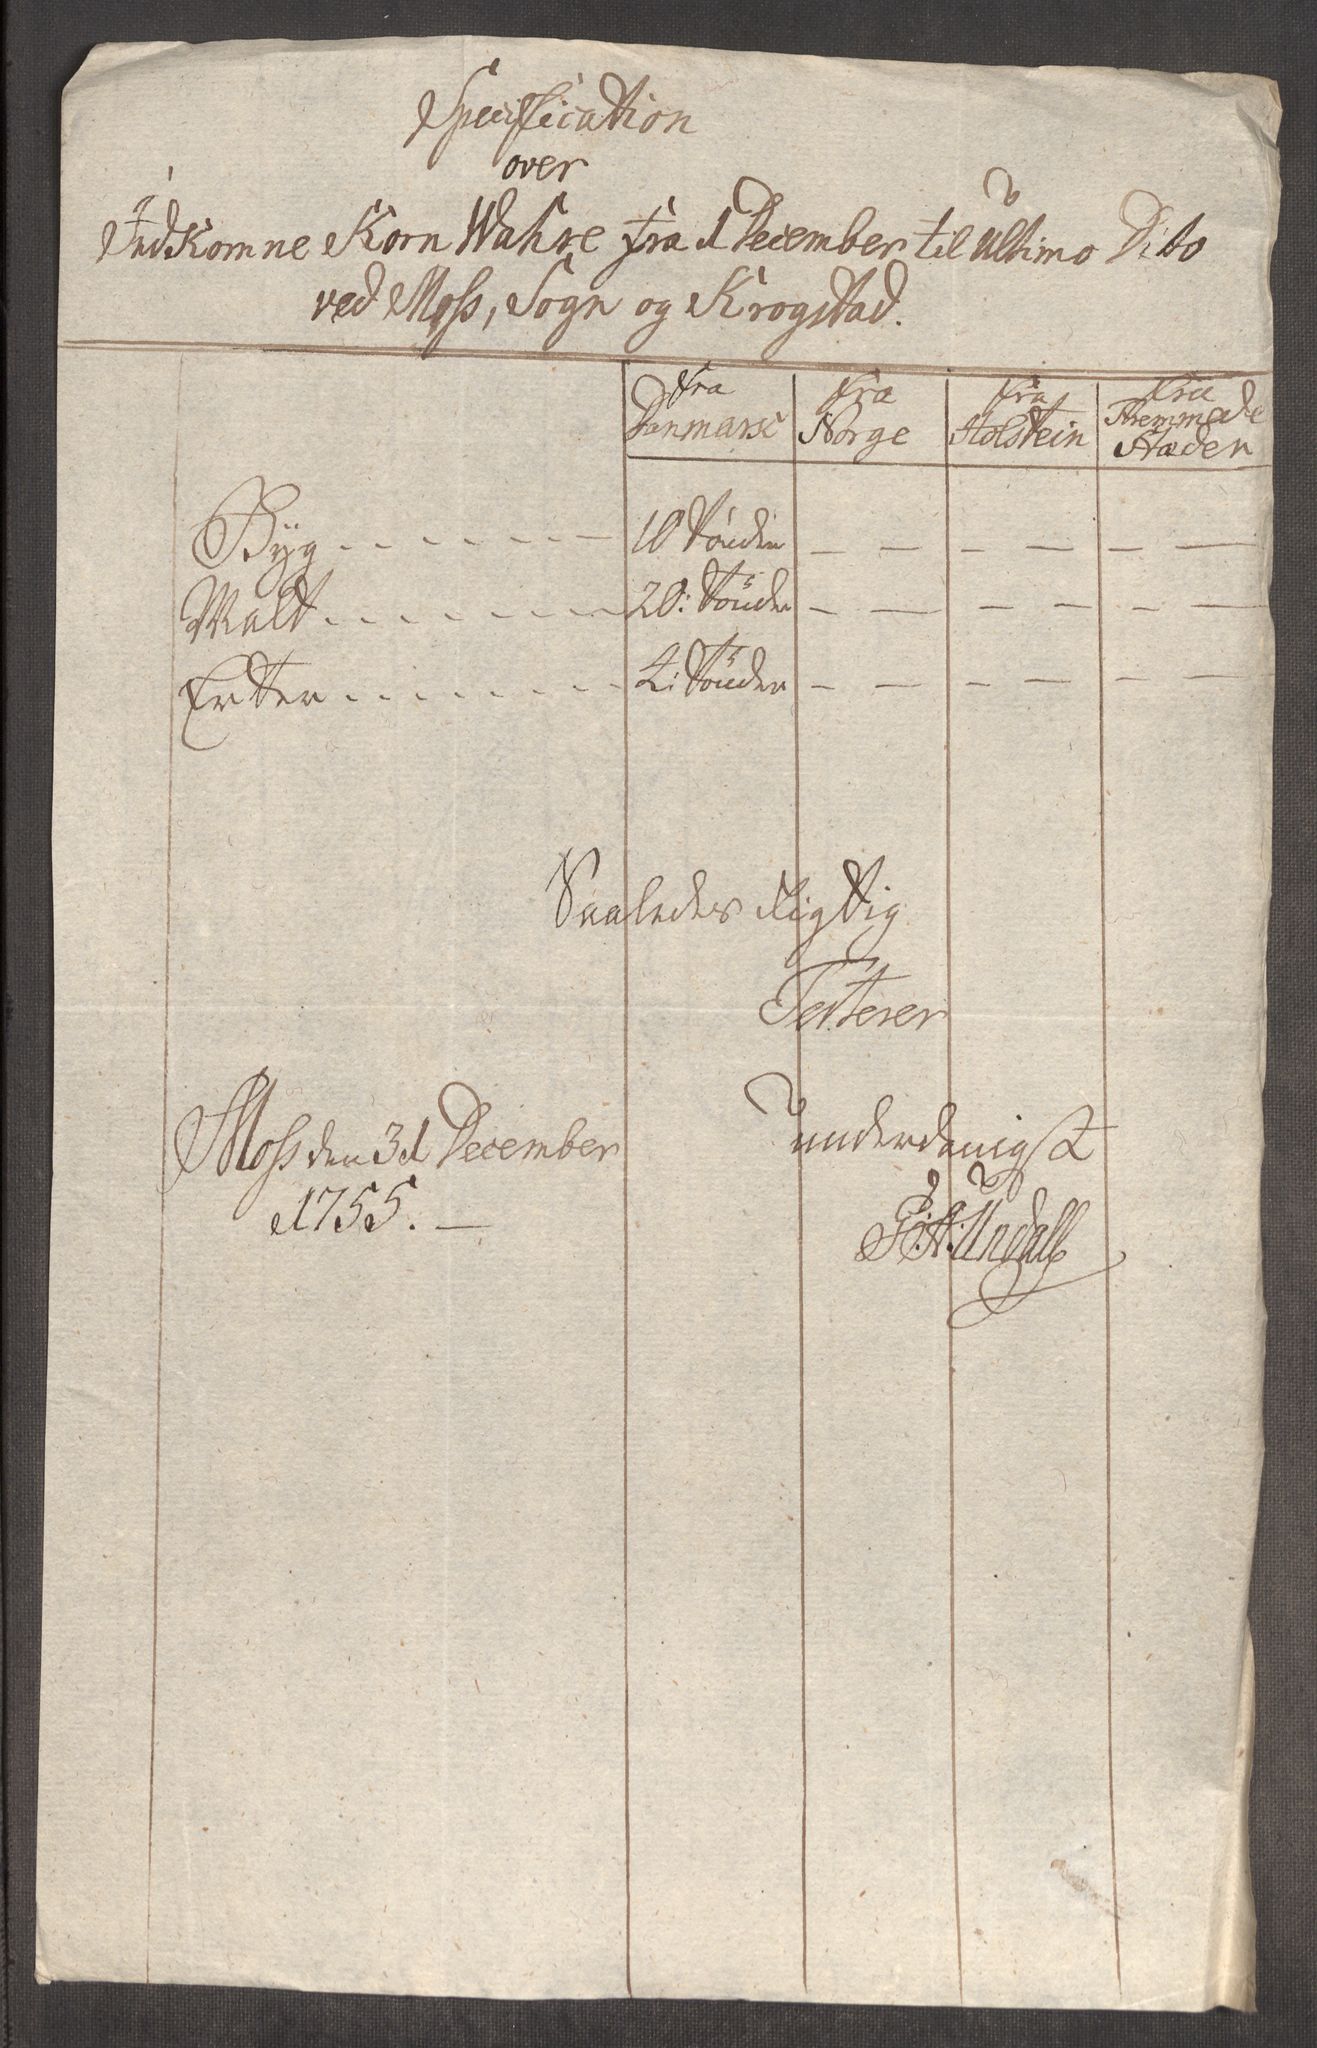 Specification
over
IndKomne Korn Wahre fra 1 December til Ultimo Dito
ved Moss, Sogn og Krogstad.
fra Danmark | fra Norge | fra Holstein | fra fremmede Stæder
Byg . . . . . . — 10 Tönder — — — — — —
Malt . . . . . . . — 20: Tönder — — — — — —
Erter . . . . . . . — 4: Tönder — — — — — —
Saaledes Rigtig
Testerer
Moss den 31 December
1755. —
underdanigst
Undall